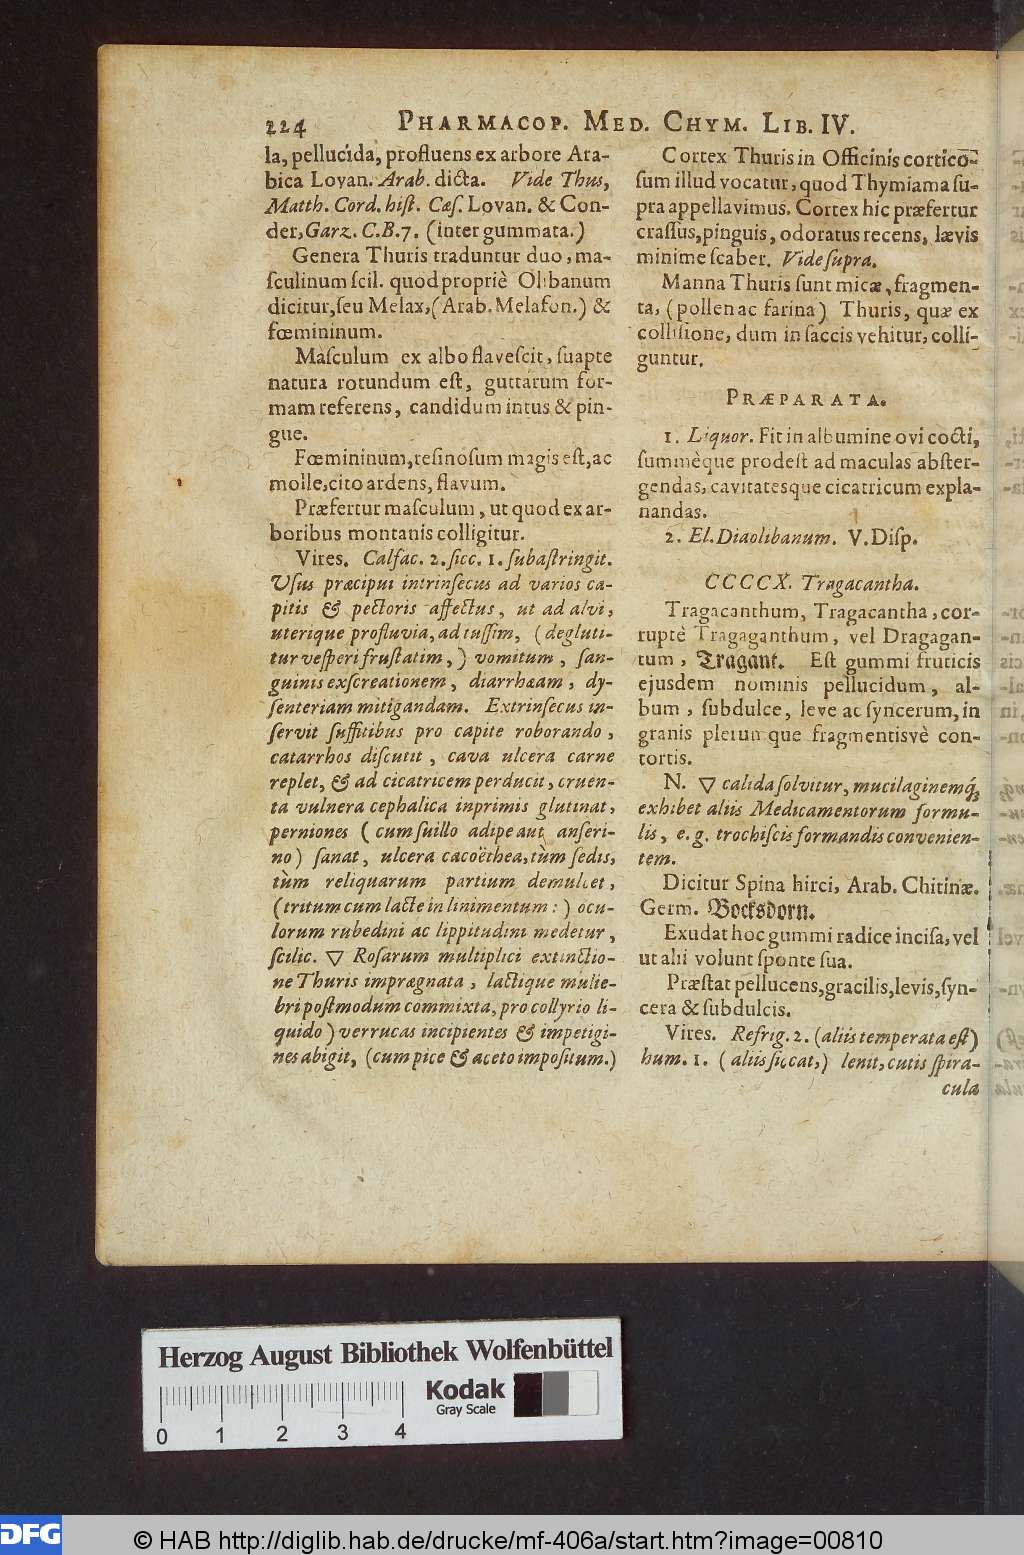 224 PHARMACOP. MED. CHYM. LIB. IV.
la, pellucida, profluens ex arbore Ara-
bica Lovan. Arab. dicta. Vide Thus,
Matth. Cord. hiſt. Cæſ. Lovan. & Con-
der, Garz. C.B.7. (inter gummata.)
Genera Thuris traduntur duo, ma-
ſculinum ſcil. quod propriè Olibanum
dicitur, ſeu Melax, (Arab. Melafon.) &
fœmininum.
Maſculum ex albo flaveſcit, ſuapte
natura rotundum eſt, guttarum for-
mam referens, candidum intus & pin-
gue.
Fœmininum, reſinoſum magis eſt, ac
molle, cito ardens, flavum.
Præfertur maſculum, ut quod ex ar-
boribus montanis colligitur.
Vires. Calfac. 2. ſicc. 1. ſubaſtringit.
Uſus præcipui intrinſecus ad varios ca-
pitis & pectoris affectus, ut ad alvi,
uterique profluvia, ad tuſſim, (degluti-
tur veſperi fruſtatim,) vomitum, ſan-
guinis exſcreationem, diarrhæam, dy-
ſenteriam mitigandam. Extrinſecus in-
ſervit ſuffitibus pro capite roborando,
catarrhos diſcutit, cava ulcera carne
replet, & ad cicatricem perducit, cruen-
ta vulnera cephalica inprimis glutinat,
perniones (cum ſuillo adipe aut anſeri-
no) ſanat, ulcera cacoëthea, tùm ſedis,
tùm reliquarum partium demulcet,
(tritum cum lacte in linimentum:) ocu-
lorum rubedini ac lippitudini medetur,
ſcilic. ▽ Roſarum multiplici extinctio-
ne Thuris imprægnata, lactique mulie-
bri poſtmodum commixta, pro collyrio li-
quido) verrucas incipientes & impetigi-
nes abigit, (cum pice & aceto impoſitum.)
Cortex Thuris in Officinis cortico-
ſum illud vocatur, quod Thymiama ſu-
pra appellavimus. Cortex hic præfertur
craſſus, pinguis, odoratus recens, lævis
minime ſcaber. Vide ſupra.
Manna Thuris ſunt micæ, fragmen-
ta, (pollen ac farina) Thuris, quæ ex
colliſione, dum in ſaccis vehitur, colli-
guntur.
PRÆPARATA.
1. Liquor. Fit in albumine ovi cocti,
ſummèque prodeſt ad maculas abſter-
gendas, cavitatesque cicatricum expla-
nandas.
2. El. Diaolibanum. V. Diſp.
CCCCX. Tragacantha.
Tragacanthum, Tragacantha, cor-
ruptè Tragaganthum, vel Dragagan-
tum, Tragant. Eſt gummi fruticis
ejusdem nominis pellucidum, al-
bum, ſubdulce, leve ac ſyncerum, in
granis plerunque fragmentisvè con-
tortis.
N. ▽ calida ſolvitur, mucilaginemq́;
exhibet aliis Medicamentorum formu-
lis, e.g. trochiſcis formandis convenien-
tem.
Dicitur Spina hirci, Arab. Chitinæ.
Germ. Bocksdorn.
Exudat hoc gummi radice inciſa, vel
ut alii volunt ſponte ſua.
Præſtat pellucens, gracilis, levis, ſyn-
cera & ſubdulcis.
Vires. Refrig. 2. (aliis temperata eſt)
hum. 1. (aliis ſiccat,) lenit, cutis ſpira-
cula
Herzog August Bibliothek Wolfenbüttel
Kodak
Gray Scale
0 1 2 3 4
DFG © HAB http://diglib.hab.de/drucke/mf-406a/start.htm?image=00810